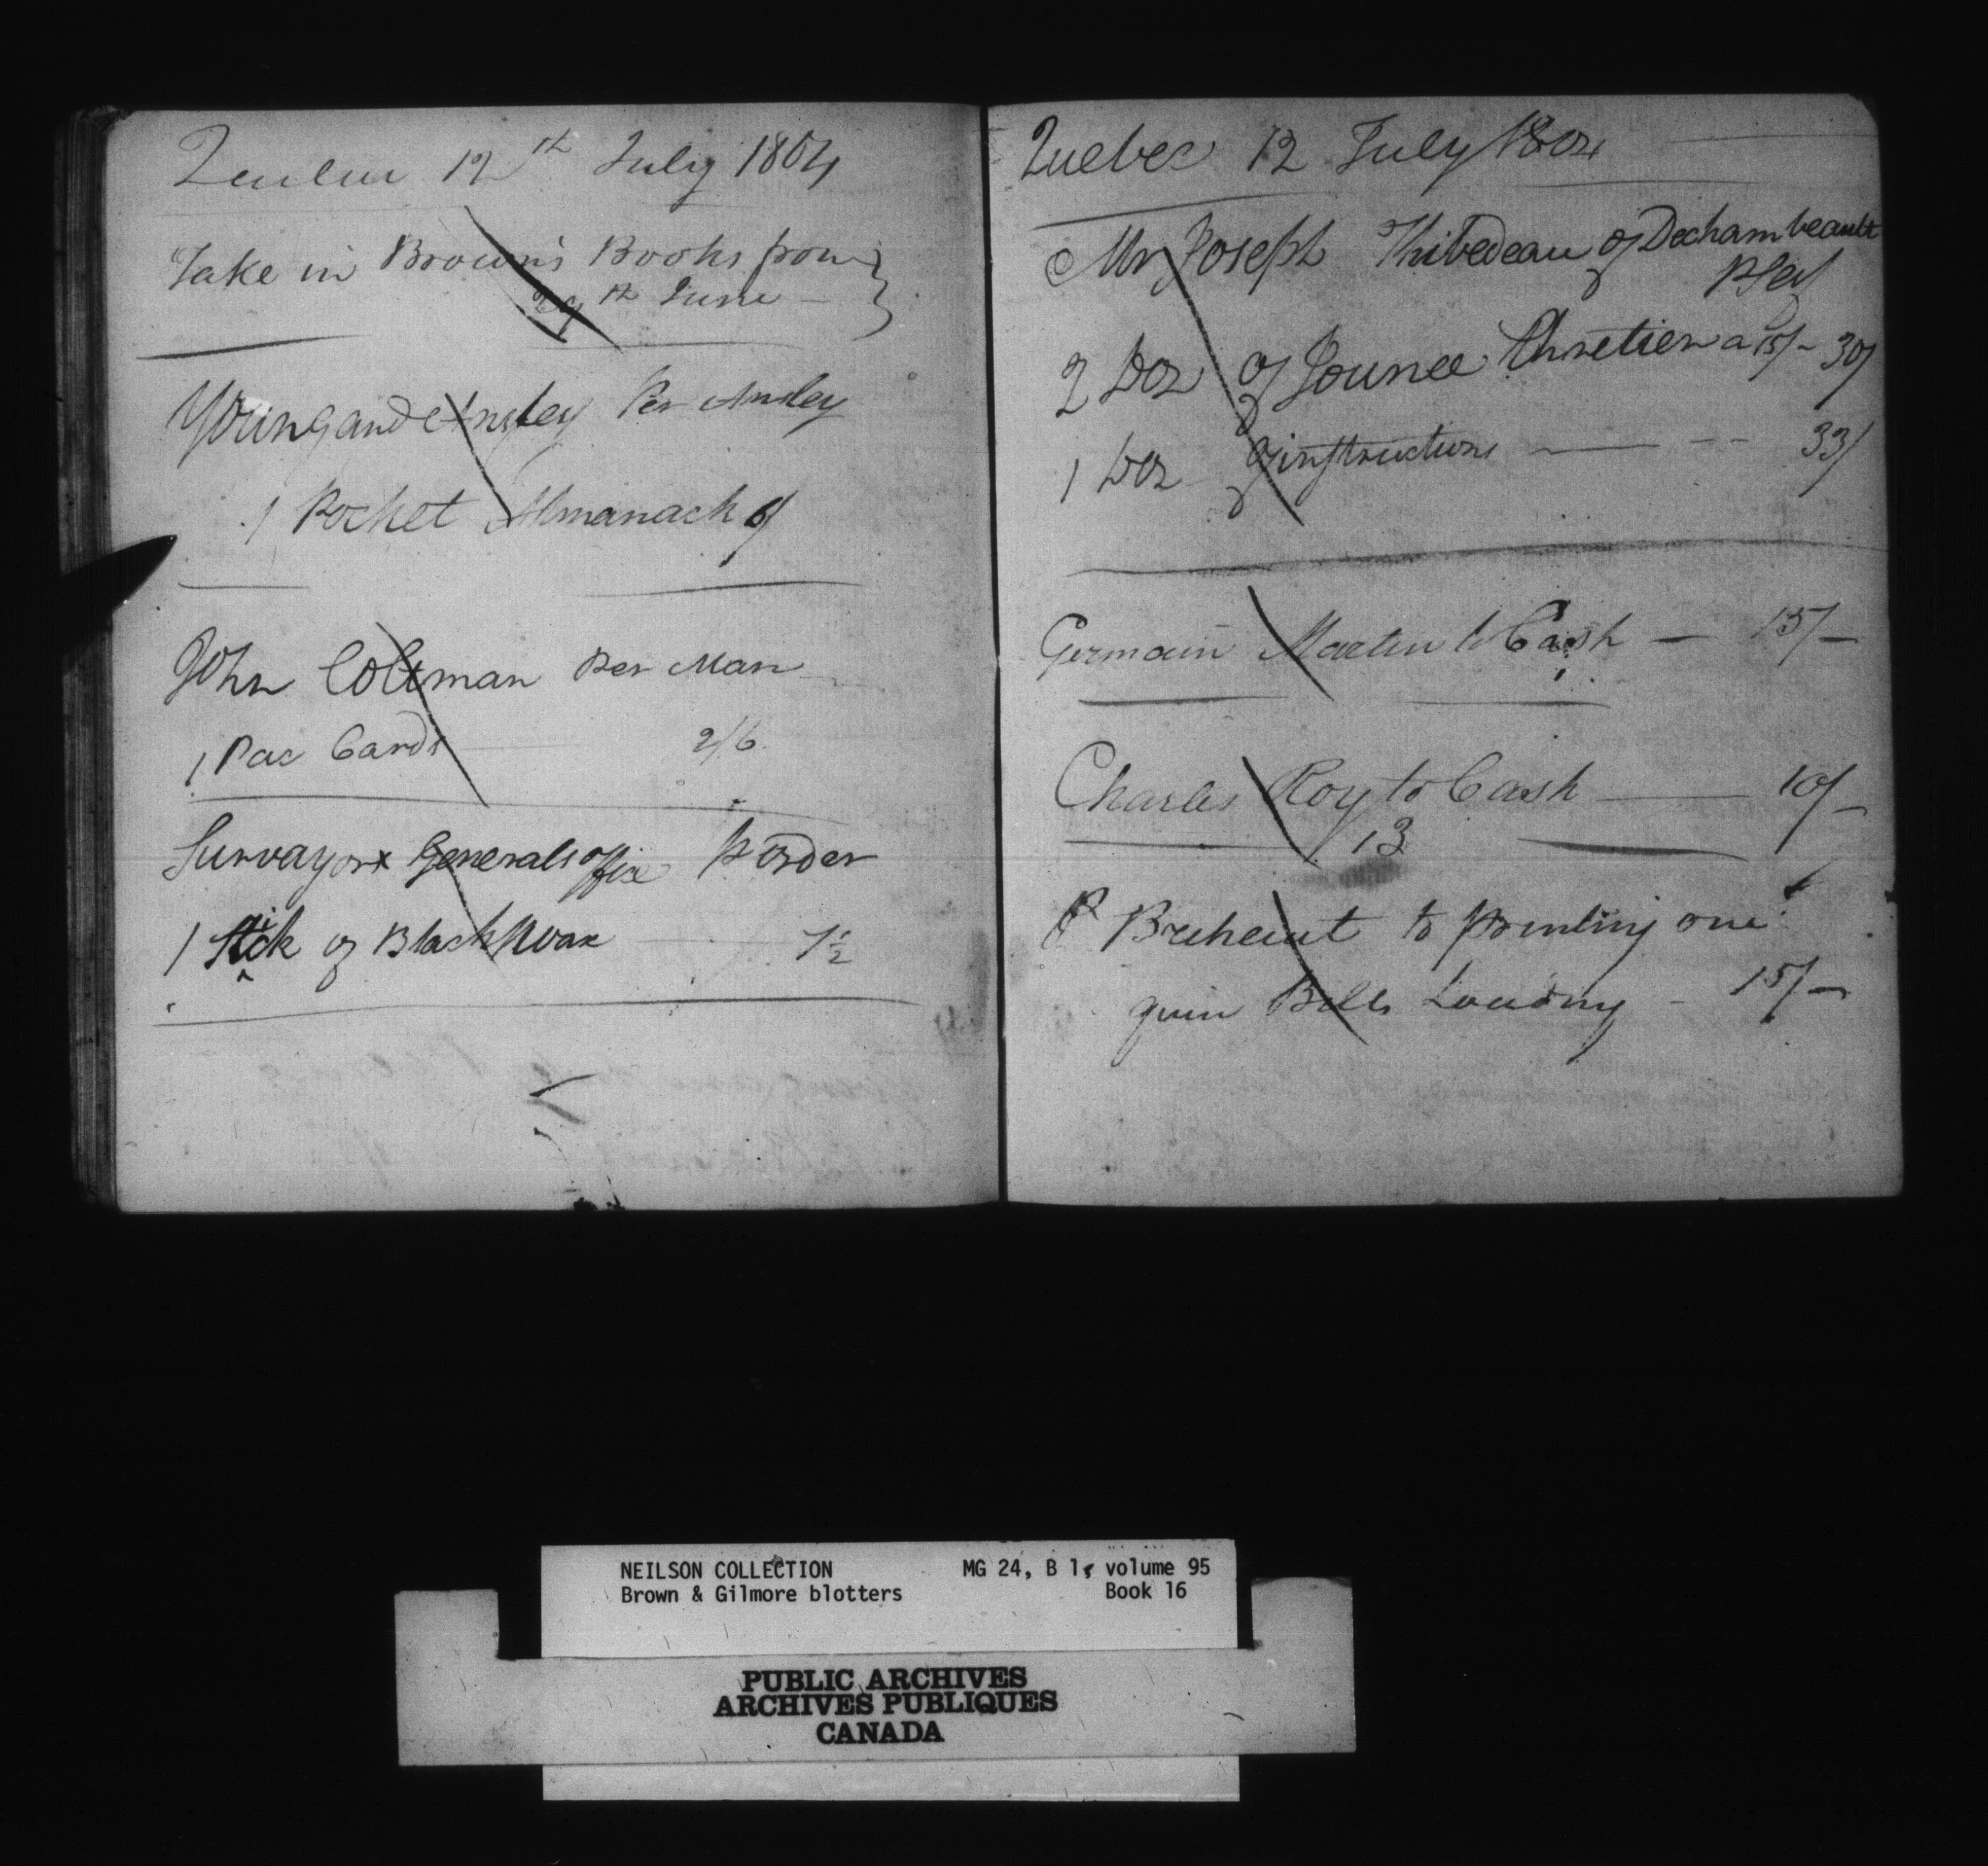 Quebec 12th July 1804
Take in Brown's Books from
29th June
Young and Ansley Per Ansley
1 Pocket Almanack
John Coltman Per Man
1 Pac Cards 2/6
Survayorx Generals offix P order
1 Stick of Black Wax 7½
Quebec 12 July 1804
Mr Joseph Thibedeau of Dechambeault
2 Doz of Jounee Chretien a 15/- 30/
1 Doz of instructions 33/
Germain Martin to Cash 15/-
Charles Roy to Cash 10/-
13
to printing one
quin Bills Loading - 15/-
NEILSON COLLECTION MG 24, B 1, volume 95
Brown & Gilmore blotters Book 16
PUBLIC ARCHIVES
ARCHIVES PUBLIQUES
CANADA